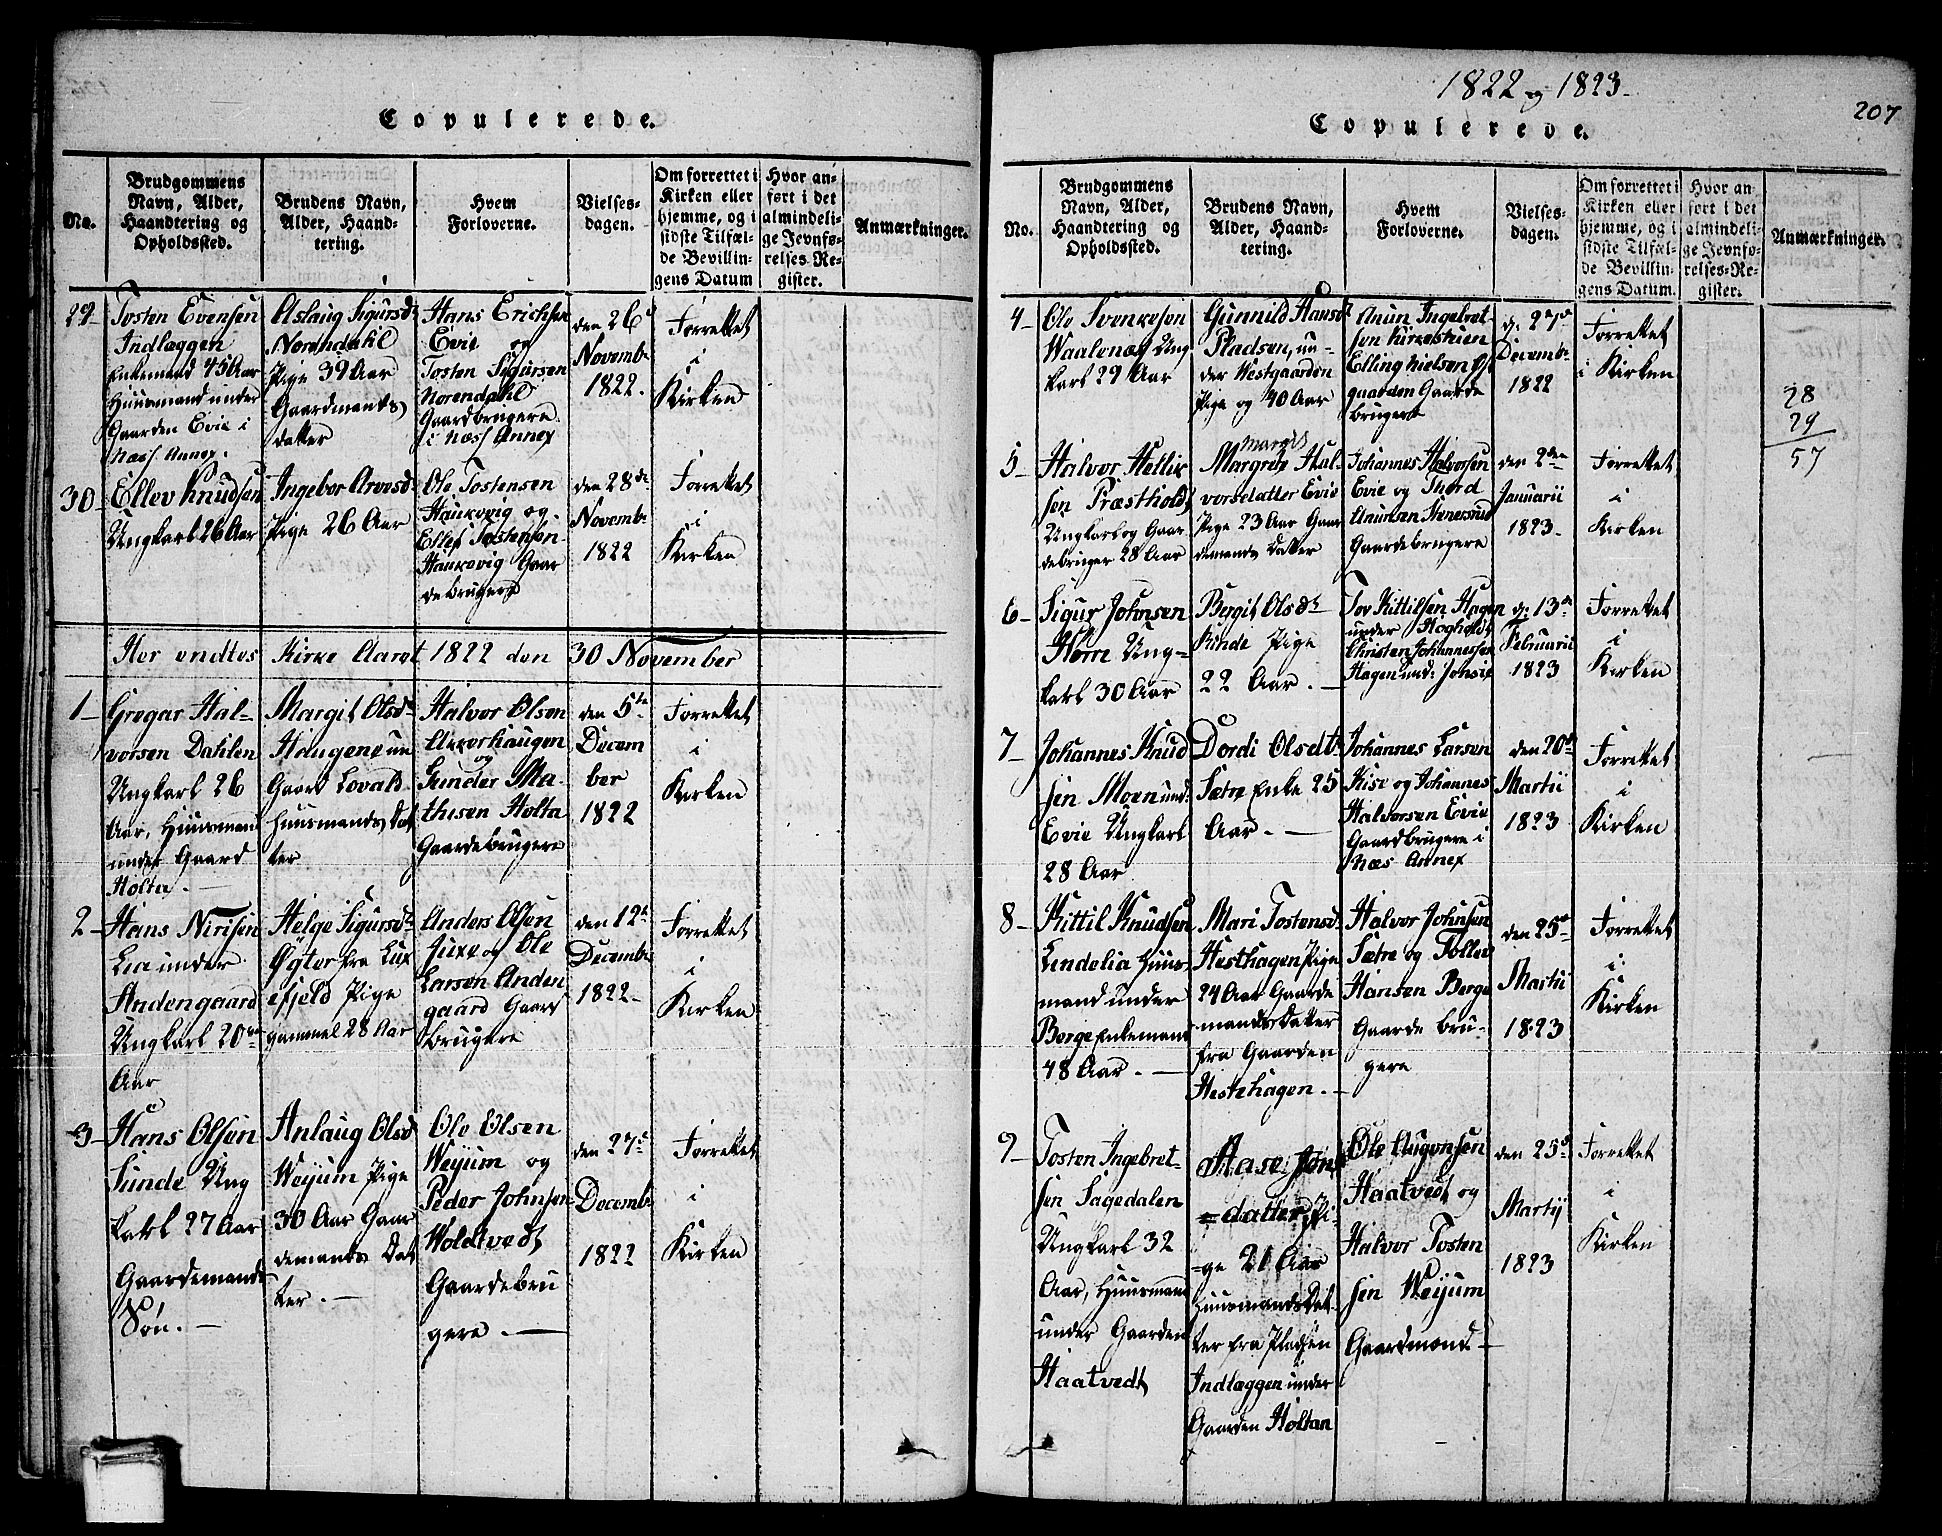 Copulerede.
No.
Brudgommens
Navn, Alder,
Haandtering og
Opholdssted.
Brudens Navn,
Alder, Haand-
tering.
Hvem
Forloverne.
Vielses-
dagen.
Om forrettet i
Kirken eller
hjemme, og i
sidste Tilfæl-
de Bevillin-
gens Datum
Hvor an-
ført i det
almindeli-
ge Jevnfø-
relses-Re-
gister.
Anmærkninger.
29
Tosten Evensen
Indlæggen
Enkemand 45 Aar
Huusmand under
Gaarden Evie i
Næss Annex.
Aslaug Sigursd
Norendahl
Pige 39 Aar
Gaardmands
datter
Hans Erichsen
Evie og
Tosten Sigursen
Norendahl
Gaardbrugere
i Næss Annex
den 26
Novembr
1822.
Forrettet
i
Kirken
30
Ellev Knudsen
Ungkarl 26 Aar
Ingebor Arvesd
Pige 26 Aar
Ole Tostensen
Haukevig og
Ellef Tostensen
Haukevig Gaar
debrugere
den 28de
Novembr
1822
Forrettet
i
Kirken
Her endtes Kirke Aaret 1822 den 30 November
1
Gregar Hal-
vorsen Dahlen
Ungkarl 26
Aar, Huusmand
under Gaard
Holta.
Margit Olsd
Haugene un
Gaard Lovald
Huusmands Dat
ter
Halvor Olsen
Akerhaugen
og
Gunder Ma-
thisen Holta
Gaardebrugere
den 5te
Decem
ber
1822
Forrettet
i
Kirken
2
Hans Nirisen
Lia under
Andengaard
Ungkarl 20
Aar
Helge Sigursd
Øyter fra Lux
efjeld Pige
gammel 28 Aar
Anders Olsen
Juxe og Ole
Larsen Anden
gaard Gaard
brugere
den 12te
Decembr
1822
Forrettet
i
Kirken
3
Hans Olsen
Sunde Ung
karl 27 Aar
Gaardemands
Søn.
Anlaug Olsd
Weyum Pige
30 Aar Gaar
demands Dat
ter.
Ole Olsen
Weyum og
Peder Johnsen
Woldtvedt
Gaardebru
gere.
den 27de
Decembr
1822
Forrettet
i
Kirken
1822 og 1823
207
Copulerede.
No.
Brudgommens
Navn, Alder,
Haandtering og
Opholdssted.
Brudens Navn,
Alder, Haand-
tering.
Hvem
Forloverne.
Vielses-
dagen.
Om forrettet i
Kirken eller
hjemme, og i
sidste Tilfæl-
de Bevillin-
gens Datum.
Hvor an-
ført i det
almindeli-
ge Jevnfø-
relses-Re-
gister.
Anmærkninger.
4
Ole Svenkesen
Waalenæs Ung
karl 29 Aar
Gunnild Hansd
Pladsen, un-
der Westgaarden
Pige og 40 Aar
Anun Ingebret
sen Kirkestuen
Elling Nielsen
gaarden Gaarde
brugere
d. 27de
Decembr
1822
Forrettet
i Kirken
28
29
57
5
Halvor Hellik
sen Præsthold
Ungkarl og Gaar
debruger 28 Aar
Margit
Margrete Hal-
vorsdatter Evie
Pige 23 Aar Gaar
demands Datter
Johannes Halvorsen
Evie og Thord
Anunsen Stenersrud
Gaardebrugere
den 2den
Januarii
1823.
Forrettet
i
Kirken
6
Sigur Johnsen
Horre Ung-
karl 30 Aar
Bergit Olsdt
Kinde Pige
22 Aar.
Tov Kittilsen Hagen
under Hogholdt
Christen Johannessen
Hagen und: Jonsie
d. 13de
Februarii
1823
Forrettet
i
Kirken
7
Johannes Knud
sen Moen und:
Evie Ungkarl
28 Aar
Dordi Olsdt
Sætre Enke 25
Aar.
Johannes Larsen
Kise og Johannes
Halvorsen Evie
Gaardbrugere i
Næs Annex
den 20de
Martii
1823
Forrettet
i
Kirken
8
Kittil Knudsen
Lindelia Huus
mand under
Berge Enkemand
48 Aar.
Mari Tostensd
Hesthagen Pige
24 Aar Gaarde
mands Datter
fra Gaarden
Hestehagen.
Halvor Johnsen
Sætre og Tollev
Hansen Berge
Gaarde bru-
gere
den 25de
Martii
1823
Forrettet
i
Kirken
9
Tosten Ingebret-
sen Sagedalen
Ungkarl 32
Aar, Huusmand
under Gaarden
Haatvedt
Aase Jons
datter Pi-
ge 21 Aar
Huusmands Dat-
ter fra Pladsen
Indlæggen under
Gaarden Holtan
Ole Augonsen
Haatvedt og
Halvor Tosten
sen Weyum
Gaardmænd
den 25de
Martij
1823
Forrettet
i
Kirken